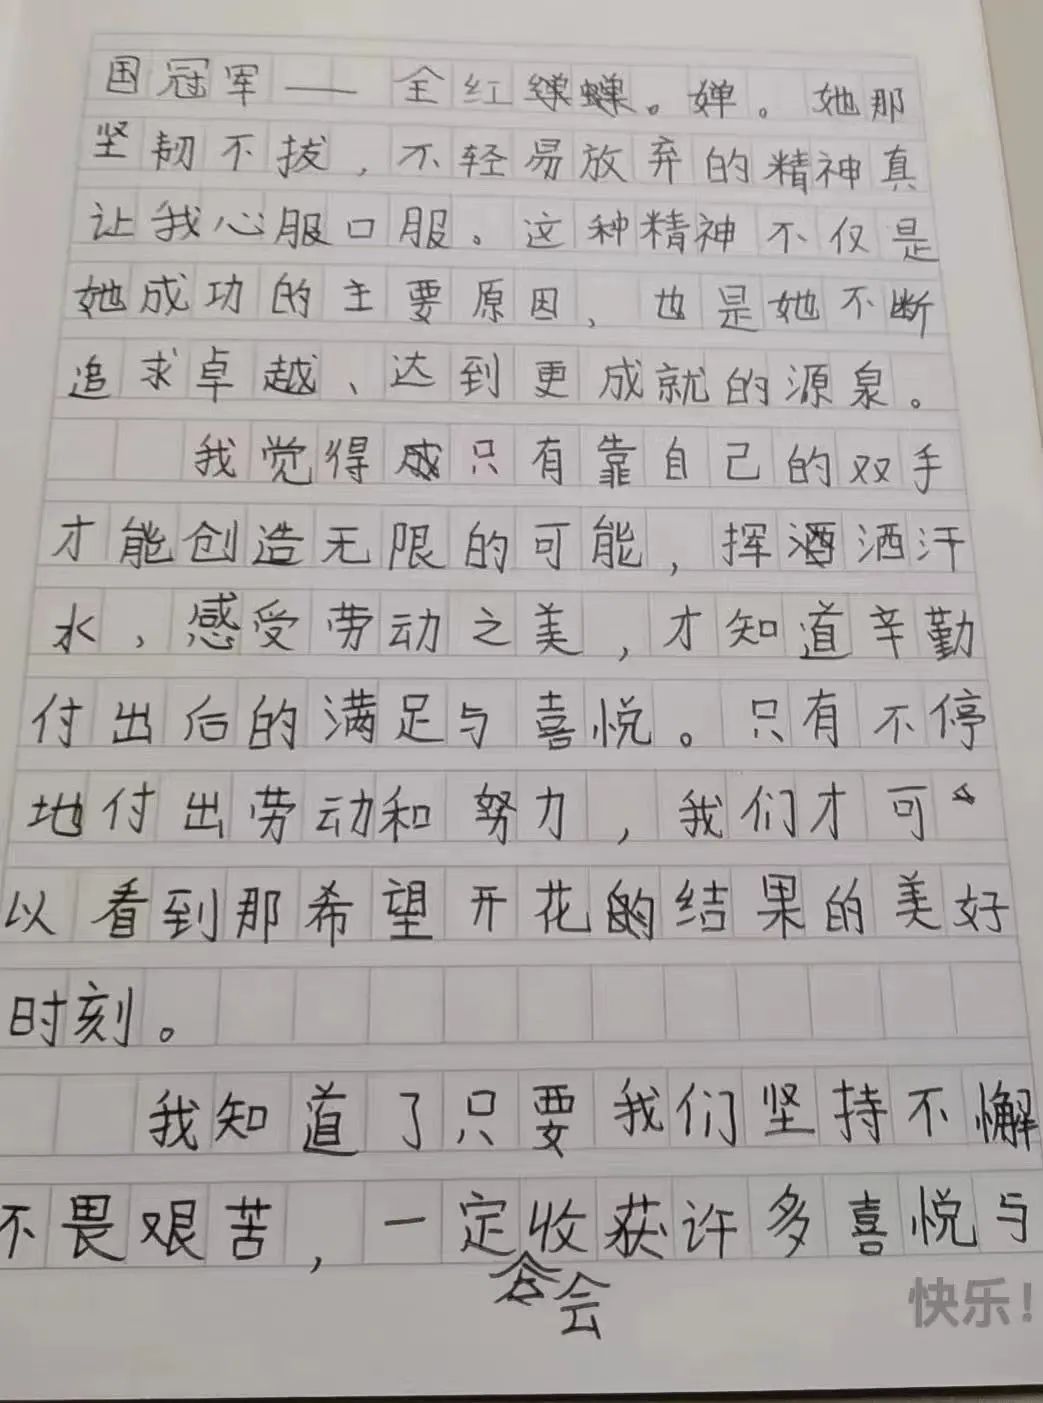 国冠军——全红婵。她那
坚韧不拔，不轻易放弃的精神真
让我心服口服。这种精神不仅是
她成功的主要原因，也是她不断
追求卓越、达到更成就的源泉。
我觉得只有靠自己的双手
才能创造无限的可能，挥洒汗
水，感受劳动之美，才知道辛勤
付出后的满足与喜悦。只有不停
地付出劳动和努力，我们才可
以看到那希望开花的结果的美好
时刻。
我知道了只要我们坚持不懈
不畏艰苦，一定收获许多喜悦与
会
快乐！